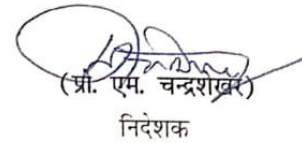 (प्रो. एम. चन्द्रशेखर)
निदेशक